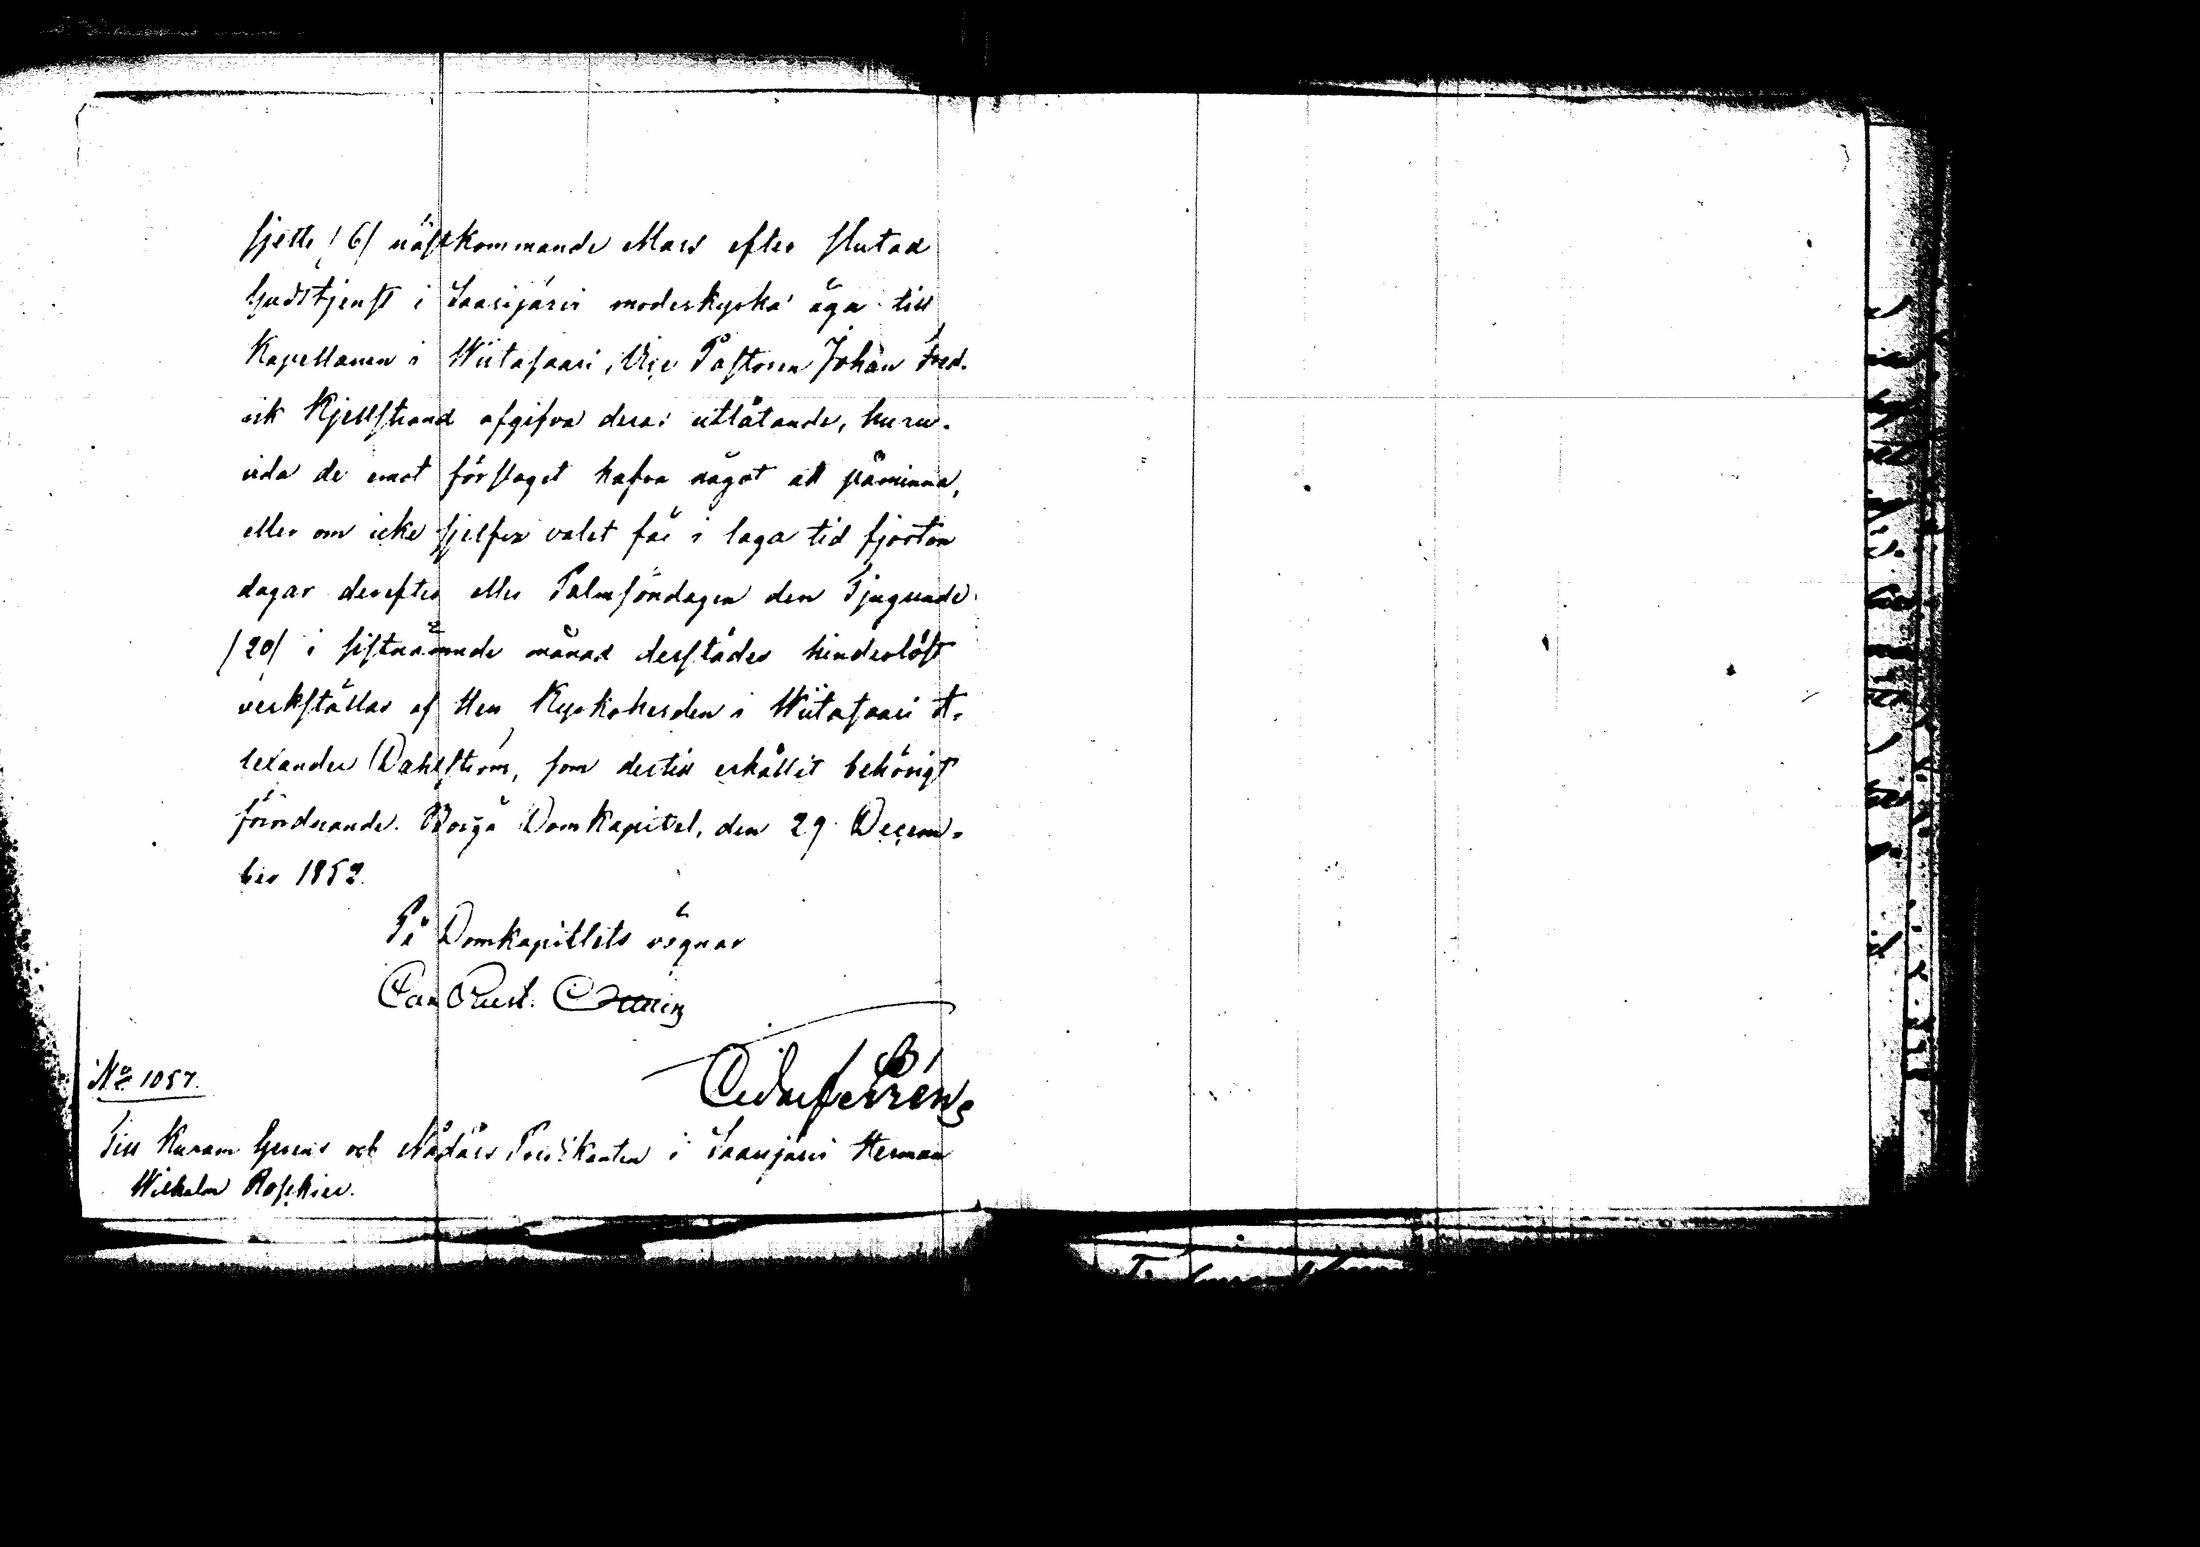 sjette /6/ nästkommande Mars efter slutad
Gudstjenst i Saarijärvi moderkyrka äga till
Kapellanen i Wiitasaari, Vice Pastoren Johan Fred.
rik Kjellstrand afgifva dera: utlåtande, huru-
vida de emot förslaget hafva något att påminna,
eller om icke sjelfva valet får i laga tid fjorton
dagar derefter eller Palmsöndagen den Tjugunde
/20/ i sistnämnde månad derstädes hinderlöst
verkställas af Herr Kyrkoherden i Wiitasaari A-
lexander Dahlström, som dertill erhållit behörigt
förordnande. Borgå Domkapitel, den 29 Decem-
ber 1852.
På Domkapitlets vägnar
No 1057.
Till Kuram Gerens och Nådårs Predikanten i Saarijärvi Herman
Wilhelm Roschier.